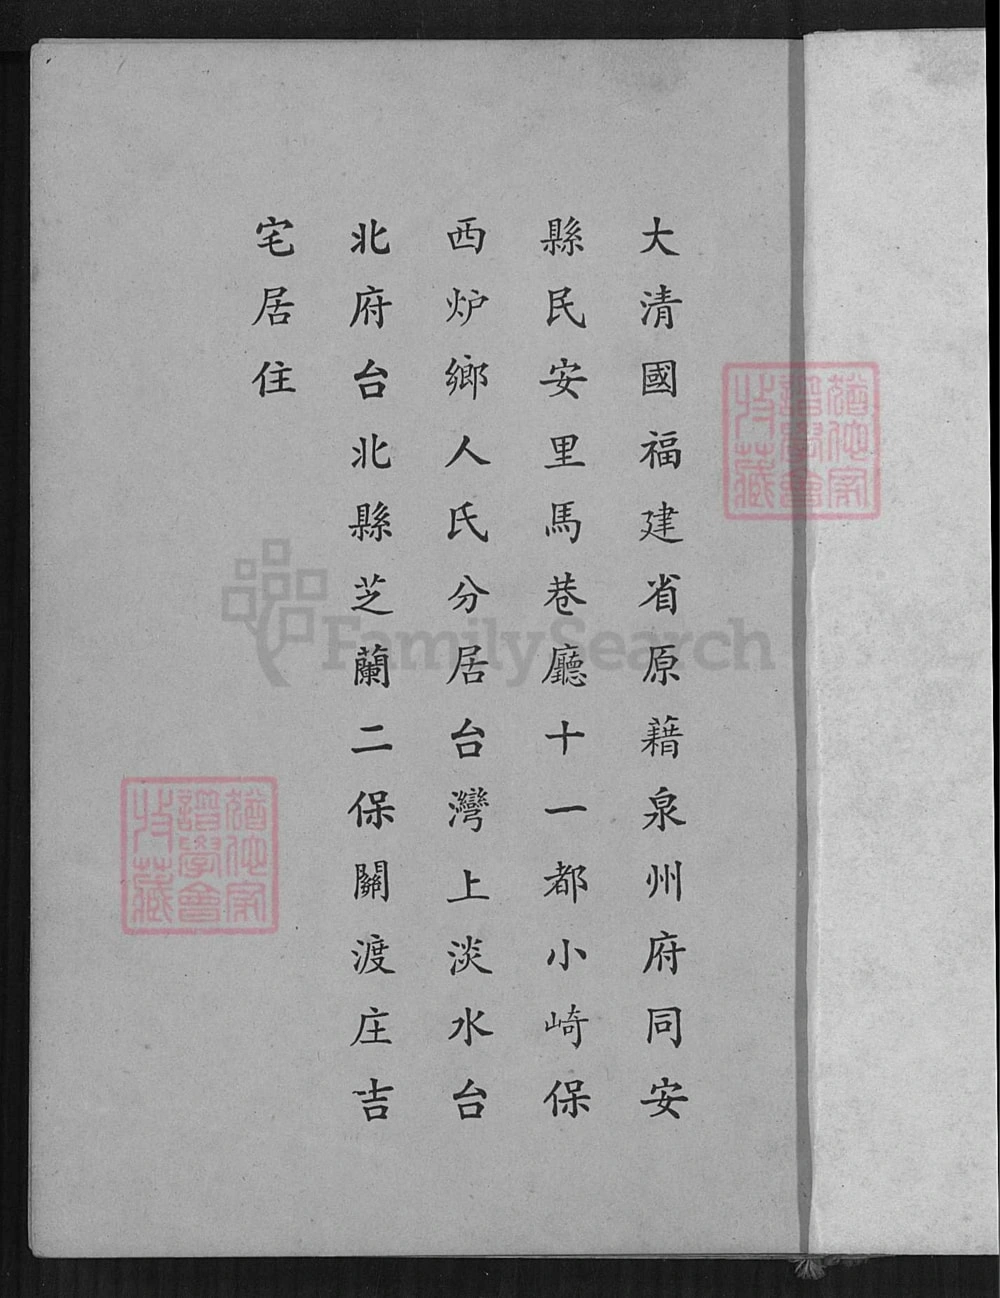 大清國福建省原藉泉州府同安
縣民安里馬巷廳十一都小崎保
西炉鄉人氏分居台灣上淡水台
北府台北縣芝蘭二保關渡庄吉
宅居住
FamilySearch